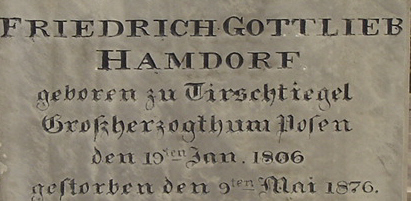 FRIEDRICH GOTTLIEB
HAMDORF
geboren zu Tirschtiegel
Großherzogthum Posen
den 19ten Jan. 1806
gestorben den 9ten Mai 1876.